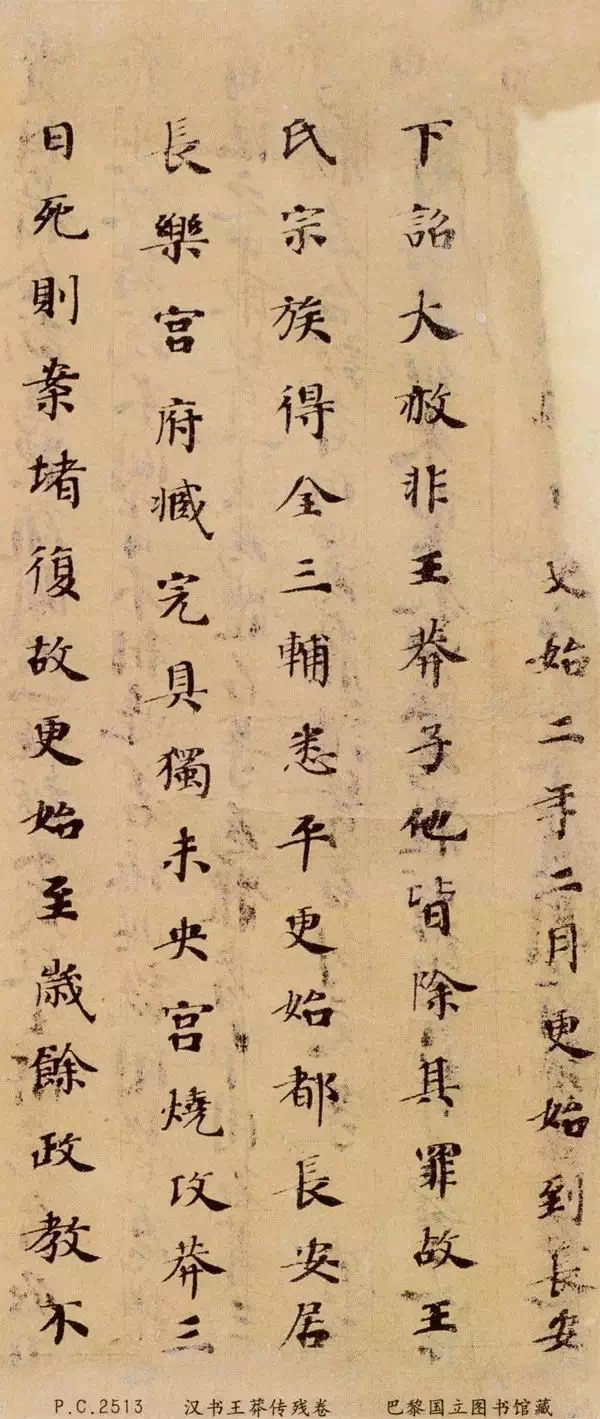 始二年二月更始到長安
下詔大赦非王莽子他皆除其罪故王
氏宗族得全三輔悉平更始都長安居
長樂宮府臧完具獨未央宮燒攻莽三
日死則案堵復故更始至歲餘政教不
P.C.2513 汉书王莽传残卷 巴黎国立图书馆藏